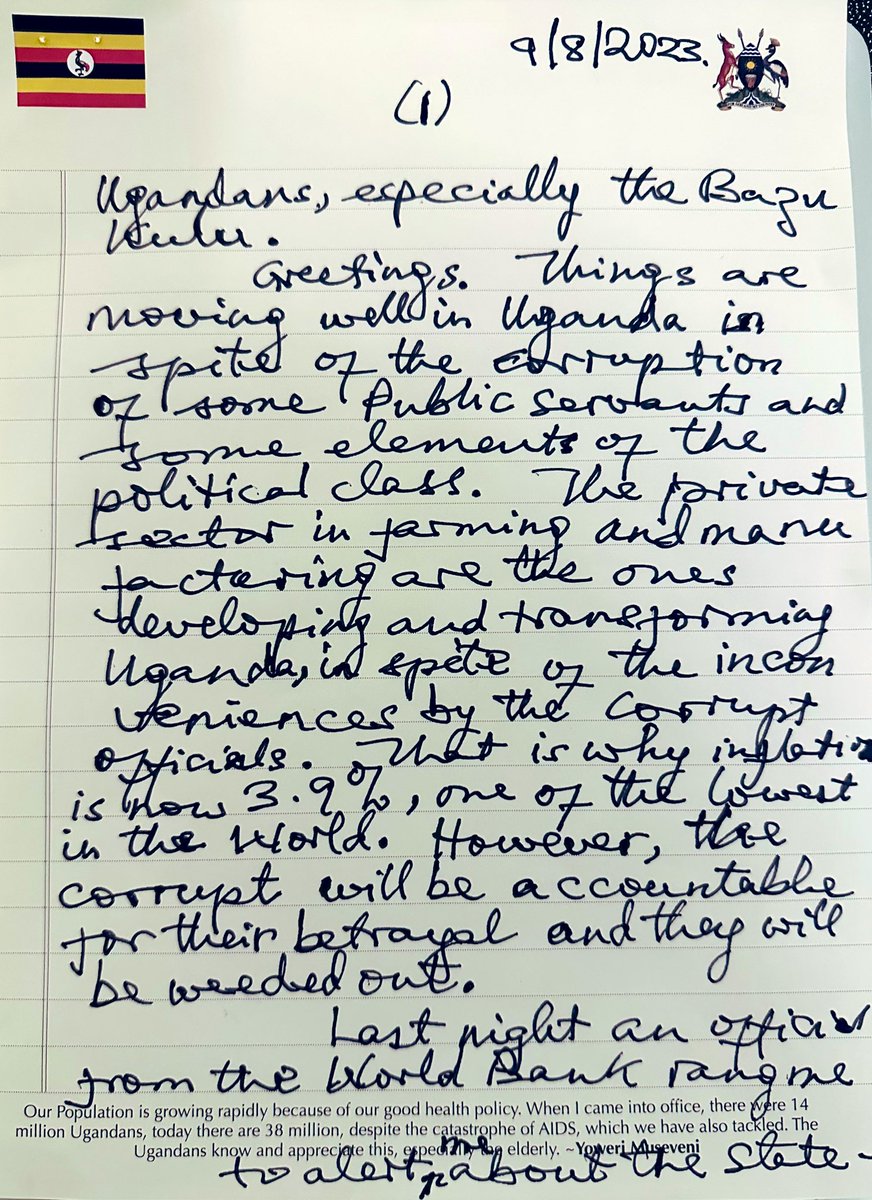 9/8/2023.
(1)
Ugandans, especially the Bazu
kulu.
Greetings. Things are
moving well in Uganda in
spite of the corruption
of some Public servants and
some elements of the
political class. The private
sector in farming and manu
facturing are the ones
developing and transforming
Uganda, in spite of the incon
veniences by the corrupt
officials. That is why inflation
is now 3.9%, one of the lowest
in the World. However, the
corrupt will be accountable
for their betrayal and they will
be weeded out.
Last night an official
from the World Bank rang me
Our Population is growing rapidly because of our good health policy. When I came into office, there were 14
million Ugandans, today there are 38 million, despite the catastrophe of AIDS, which we have also tackled. The
Ugandans know and appreciate this, especially the elderly. ~Yoweri Museveni
to alert me about the state-